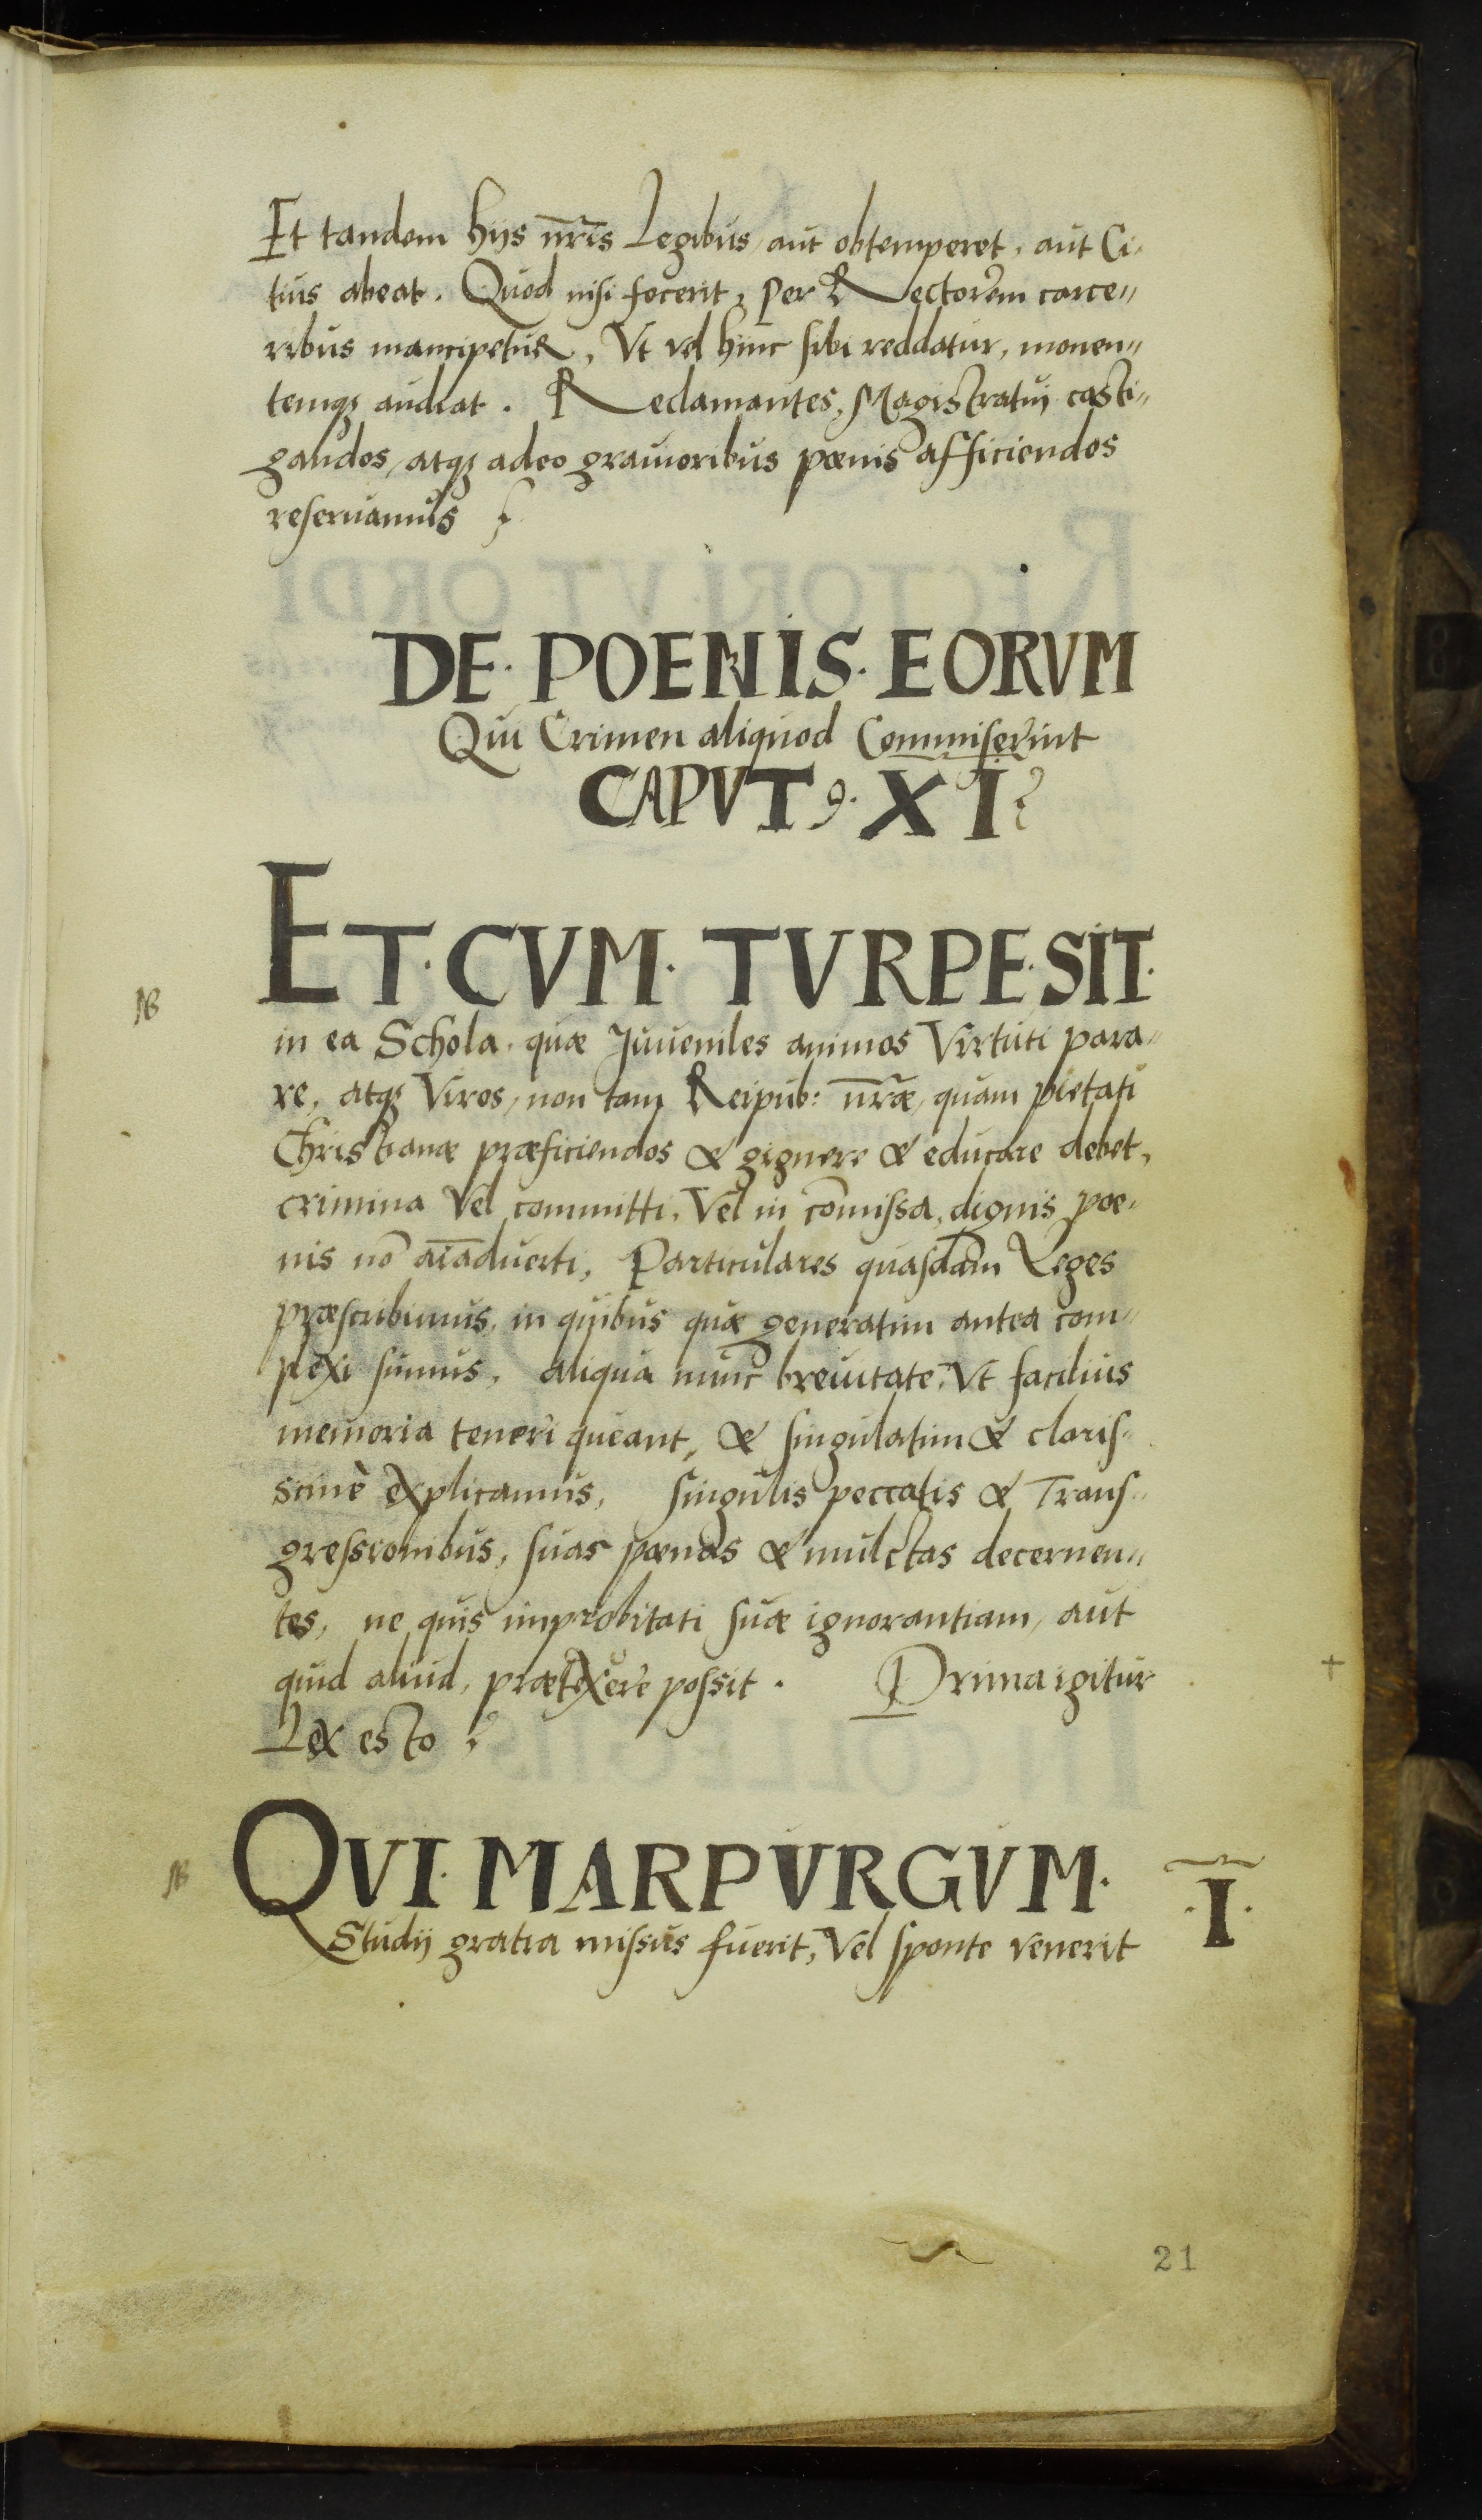 Et tandem hijs nr̄is Legibus, aut obtemperet, aut Ci-
tius abeat. Quod nisi fecerit, per Rectorem carce„
ribus mancipetur, Vt vel hinc sibi reddatur, monen„
temqꝫ audiat. Reclamantes, Magistratui casti„
gandos, atqꝫ adeo grauioribus pœnis afficiendos
reseruamus
DE· POENIS· EORVM
Qui Crimen aliquod Commiserint
CAPVT· XI
ET· CVM· TVRPE· SIT·
NB
in ea Schola, quæ Juueniles animos Virtuti para„
re, atqꝫ Viros, non tam Reipub: nr̄æ, quam pietati
Christianæ præficiendos & gignere & educare debet,
crimina Vel committi, Vel in com̄issa, dignis poe-
nis nō aīaduerti, Particulares quasdam Leges
præscribimus, in quibus quæ generatim antea com„
plexi sumus, aliqua nunc breuitate, Vt facilius
memoria teneri queant, & singulatim & claris-
simè explicamus, singulis peccatis & Trans-
gressionibus, suas pœnas & mulctas decernen„
tes, ne quis improbitati suæ ignorantiam, aut
quid aliud, prætexere possit. Prima igitur
Lex esto
NB QVI· MARPVRGVM· ·I·
Studij gratia missus fuerit, Vel sponte venerit
21